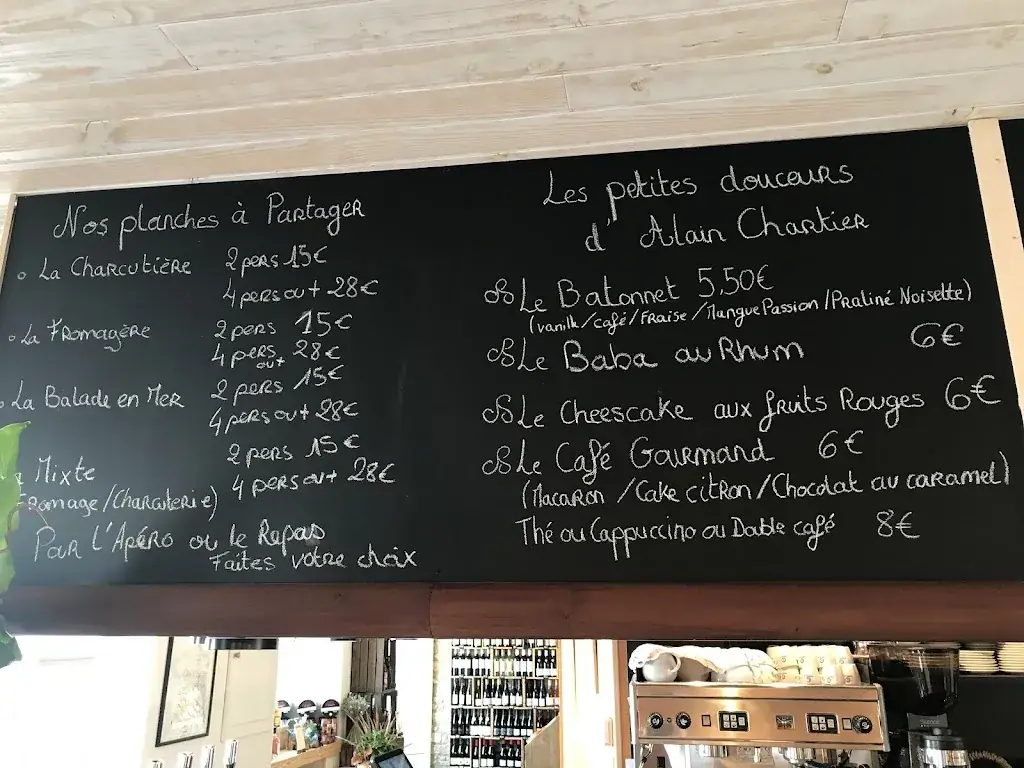 Nos planches à Partager
La Charcutière 2 pers 15€
4 pers ou + 28€
La Fromagère 2 pers 15€
4 pers ou + 28€
La Balade en Mer 2 pers 15€
4 pers ou + 28€
Mixte 2 pers 15€
(Fromage/Charcuterie) 4 pers ou + 28€
Pour l'Apéro ou le Repas
Faites votre choix
Les petites douceurs
d'Alain Chartier
Le Batonnet 5,50€
(vanille/café/Fraise/Mangue Passion/Praliné Noisette)
Le Baba au Rhum 6€
Le Cheescake aux fruits Rouges 6€
Le Café Gourmand 6€
(Macaron/Cake citron/Chocolat au caramel)
Thé ou Cappuccino ou Double café 8€